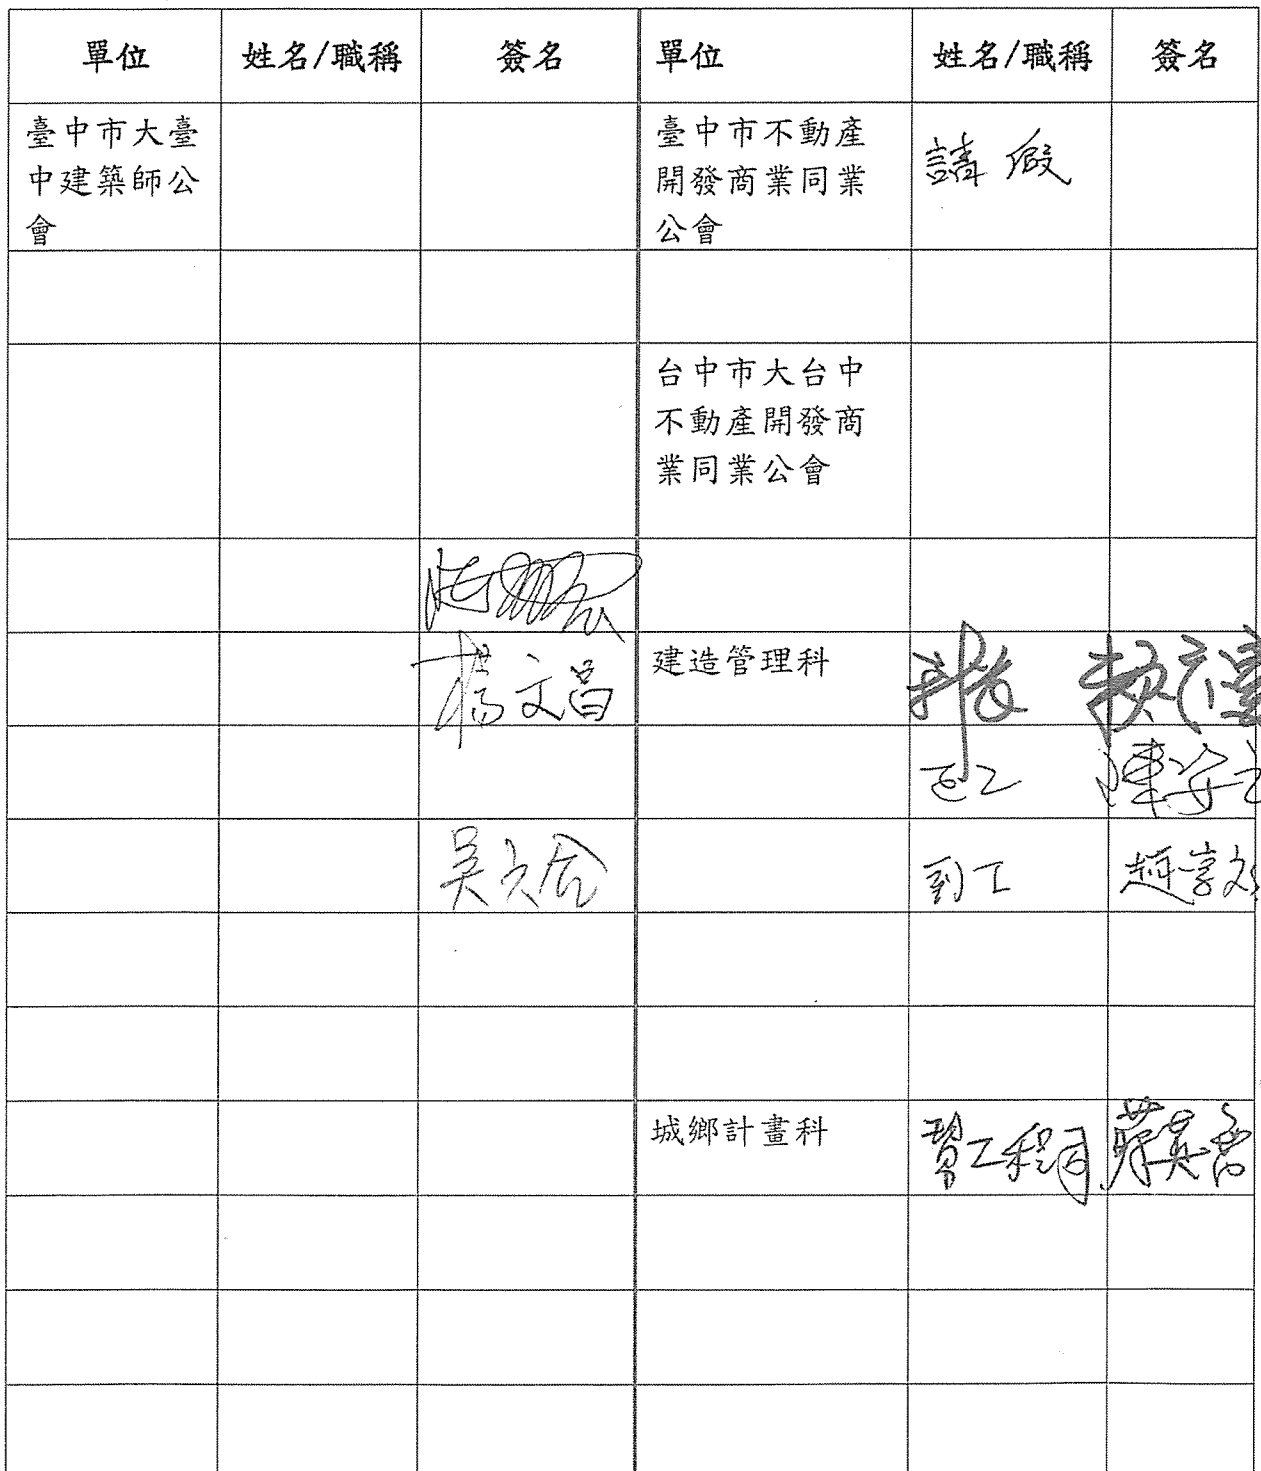 單位 姓名/職稱 簽名 單位 姓名/職稱 簽名
臺中市大臺
中建築師公
會
臺中市不動產
開發商業同業
公會
請假
台中市大台中
不動產開發商
業同業公會
楊文昌
建造管理科
科長 賴
正工 陳安
吳
副工 趙
城鄉計畫科
幫工程司